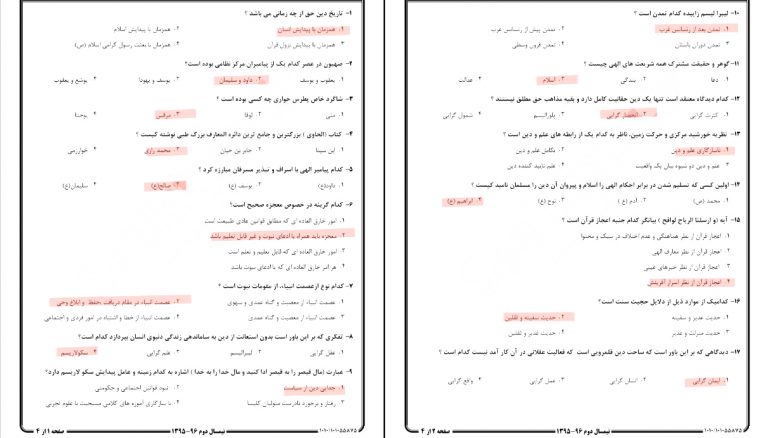 ۱- تاریخ دین حق از چه زمانی می باشد ؟
۱. همزمان با پیدایش انسان
۲. همزمان با پیدایش اسلام
۳. همزمان با پیدایش نزول قرآن
۴. همزمان با بعثت رسول گرامی اسلام (ص)
۲- صهیون در عصر کدام یک از پیامبران مرکز نظامی بوده است؟
۱. یعقوب و یوسف
۲. داود و سلیمان
۳. یوسف و یهودا
۴. یوشع و یعقوب
۳- شاگرد خاص پطرس حواری چه کسی بوده است ؟
۱. متی
۲. لوقا
۳. مرقس
۴. یوحنا
۴- کتاب (الحاوی ) بزرگترین و جامع ترین دائره المعارف بزرگ طبی نوشته کیست ؟
۱. ابن سینا
۲. جابر بن حیان
۳. محمد رازی
۴. خوارزمی
۵- کدام پیامبر الهی با اسراف و تبذیر مسرفان مبارزه کرد ؟
۱. داود(ع)
۲. یوسف (ع)
۳. صالح(ع)
۴. سلیمان(ع)
۶- کدام گزینه در خصوص معجزه صحیح است؟
۱. امور خارق العاده ای که مطابق قوانین عادی طبیعت است
۲. معجزه باید همراه با ادعای نبوت و غیر قابل تعلیم باشد
۳. امور خارق العاده ای که قابل تعلیم و تعلم است
۴. هر امر خارق العاده ای که با ادعای نبوت باشد
۷- کدام نوع ازعصمت انبیاء، از مقومات نبوت است ؟
۱. عصمت انبیاء از معصیت و گناه عمدی و سهوی
۲. عصمت انبیاء در مقام دریافت ،حفظ و ابلاغ وحی
۳. عصمت انبیاء از معصیت و گناه عمدی
۴. عصمت انبیاء از خطا و اشتباه در امور فردی و اجتماعی
۸- تفکری که بر این باور است بدون استعانت از دین به ساماندهی زندگی دنیوی انسان بپردازد کدام است؟
۱. عقل گرایی
۲. لیبرالیسم
۳. علم گرایی
۴. سکولاریسم
۹- عبارت (مال قیصر را به قیصر ادا کنید و مال خدا را به خدا ) اشاره به کدام زمینه و عامل پیدایش سکو لاریسم دارد؟
۱. جدایی دین از سیاست
۲. نبود قوانین اجتماعی و حکومتی
۳. رفتار و برخورد نادرست متولیان کلیسا
۴. نا سازگاری آموزه های کلامی مسیحیت با علوم تجربی
صفحه ۱ از ۴
نیمسال دوم ۹۶-۱۳۹۵
۱۰۱۰/۱۰۱۰۵۵۸۷۵
۱۰- لیبرا لیسم زاییده کدام تمدن است ؟
۱. تمدن بعد از رنسانس غرب
۲. تمدن پیش از رنسانس غرب
۳. تمدن دوران باستان
۴. تمدن قرون وسطی
۱۱- گوهر و حقیقت مشترک همه شریعت های الهی چیست ؟
۱. دعا
۲. بندگی
۳. اسلام
۴. عدالت
۱۲- کدام دیدگاه معتقد است تنها یک دین حقانیت کامل دارد و بقیه مذاهب حق مطلق نیستند ؟
۱. کثرت گرایی
۲. انحصار گرایی
۳. پلورالیسم
۴. شمول گرایی
۱۳- نظریه خورشید مرکزی و حرکت زمین، ناظر به کدام یک از رابطه های علم و دین است ؟
۱. ناسازگاری علم و دین
۲. تکامل علم و دین
۳. علم و دین دو شیوه بیان یک واقعیت
۴. علم تایید کننده دین
۱۴- اولین کسی که تسلیم شدن در برابر احکام الهی را اسلام و پیروان آن دین را مسلمان نامید کیست ؟
۱. محمد (ص)
۲. آدم ( ع )
۳. نوح (ع)
۴. ابراهیم (ع)
۱۵- آیه (و ارسلنا الریاح لواقح ) بیانگر کدام جنبه اعجاز قرآن است ؟
۱. اعجاز قرآن از نظر هماهنگی و عدم اختلاف در سبک و محتوا
۲. اعجاز قرآن از نظر معارف الهی
۳. اعجاز قرآن از نظر خبرهای غیبی
۴. اعجاز قرآن از نظر اسرار آفرینش
۱۶- کدامیک از موارد ذیل از دلایل حجیت سنت است؟
۱. حدیث غدیر و سفینه
۲. حدیث سفینه و ثقلین
۳. حدیث منزلت و غدیر
۴. حدیث غدیر و ثقلین
۱۷- دیدگاهی که بر این باور است که ساحت دین قلمرویی است که فعالیت عقلانی در آن کار آمد نیست کدام است ؟
۱. ایمان گرایی
۲. انسان گرایی
۳. عمل گرایی
۴. واقع گرایی
صفحه ۲ از ۴
نیمسال دوم ۹۶-۱۳۹۵
۱۰۱۰/۱۰۱۰۵۵۸۷۵